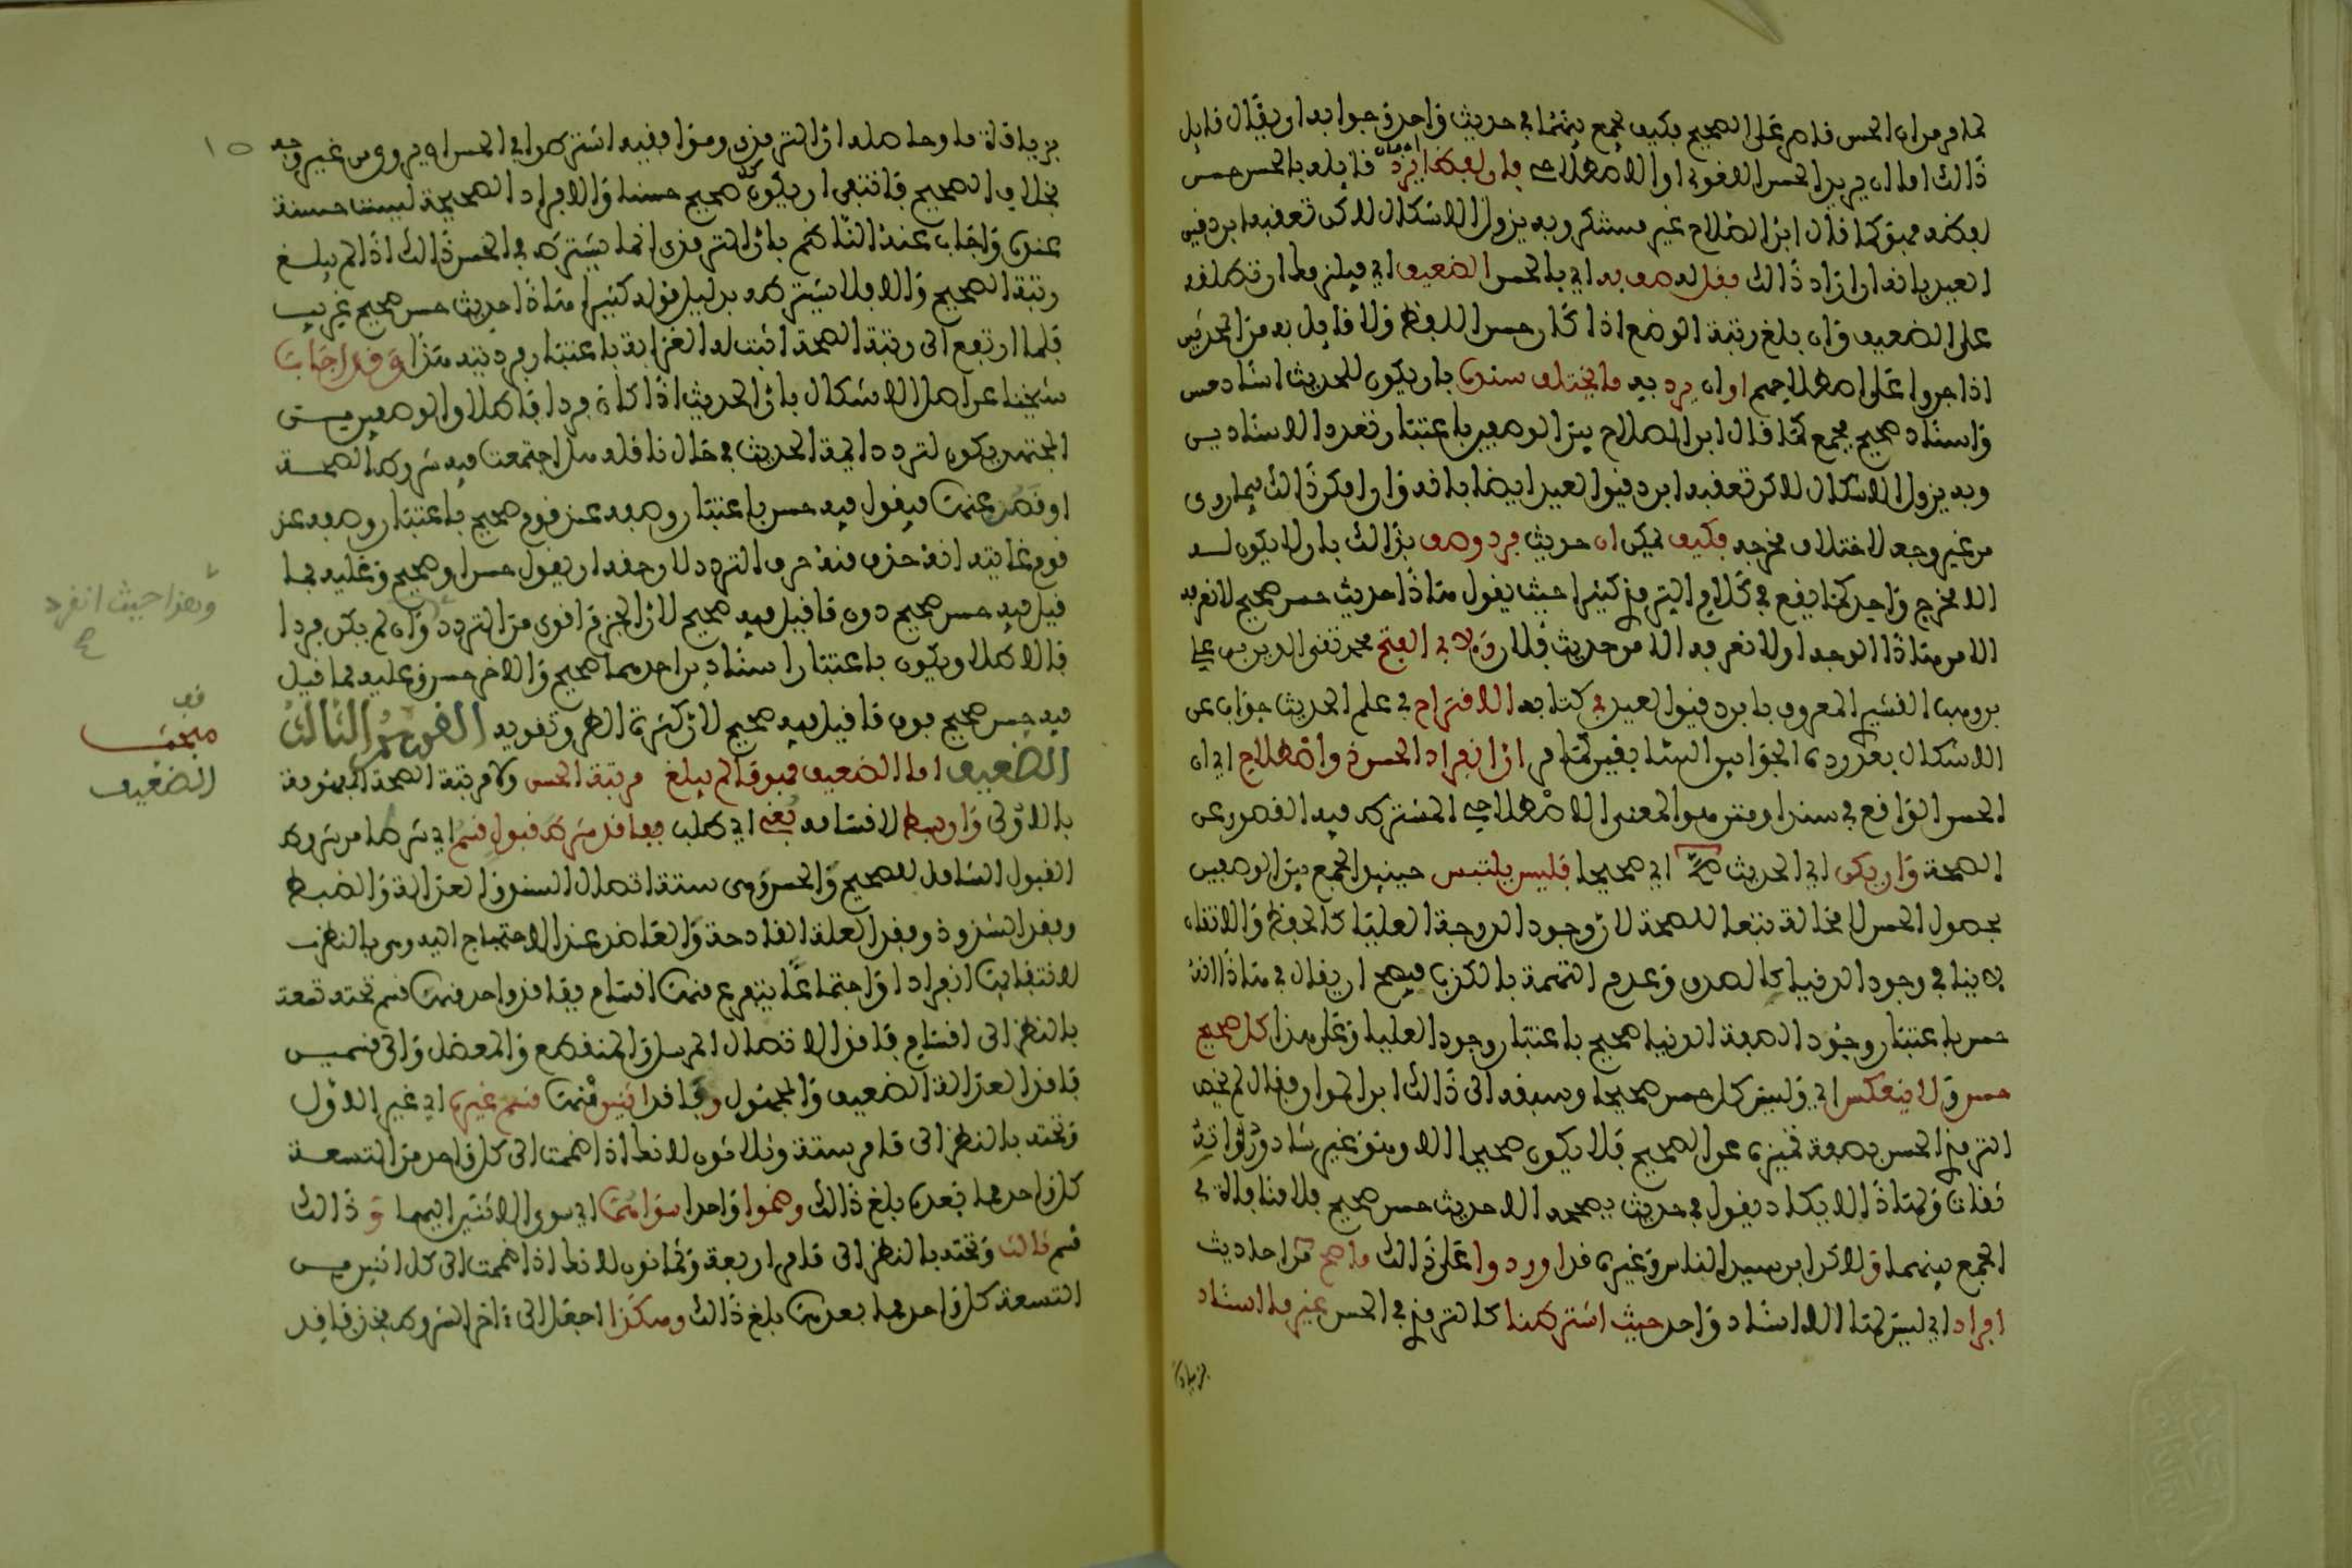 لما مر من ان الحسن قاصر على الصحيح فكيف يجمع بينهما في حديث واحد وجوابه ان يقال قابل
ذالك اما ان يريد الحسن اللغوي او الاصطلاحي فان لفظا يرد قابله بالحسن حسن
لفظه فهو كما قال ابن الصلاح غير مستنكر وبه يزول الاشكال لاكن تعقبه ابن دقيق
العيد بانه ان اراد ذالك فقل صف به اي بالحسن الضعيف اي فيلزم ان تطلقه
على الضعيف وان بلغ رتبة الوضع اذا كان حسن اللفظ ولا قائل به من المحدثين
اذا جروا على اصطلاحهم او ان يرد به ما يختلف سنده بان يكون للحديث اسناد حسن
واسناد صحيح فيجمع كما قال ابن الصلاح بين الوصفين باعتبار تعدد الاسنادين
وبه يزول الاشكال لاكن تعقبه ابن دقيق العيد ايضا بانه وان امكن ذالك فيما روي
من غير وجه لاختلاف مخرجه فكيف يمكن ان حديث فرد وصف بذالك بان لا يكون لـه
الا مخرج واحد كما يقع في كلام الترمذي كثيرا حيث يقول هاذا حديث حسن صحيح لا نعرفه
الا من هاذا الوجه او لا نعرفه الا من حديث فلان ولابي الفتح محمد تقي الدين بن علي
بن وهب القشيري المعروف بابن دقيق العيد في كتابه الاقتراح في علم الحديث جواب عن
الاشكال بعد رده الجوابين السابقين كما مر ان انفراد الحسن ذو اصطلاح اي ان
الحسن الواقع في سند او متن هو المعنى الاصطلاحي المشترط فيه القصور عن
الصحة وان يكن اي الحديث صح اي صحيحا فليس يلتبس حينئذ الجمع بين الوصفين
بحصول الحسن لا محالة تبعا للصحة لان وجود الدرجة العليا كالحفظ والاتقان
لا ينافي وجود الدنيا كالصدق وعدم التهمة بالكذب فيصح ان يقال في هاذا انه
حسن باعتبار وجود الصفة الدنيا صحيح باعتبار وجود العليا وعلى هذا كل صحيح
حسن ولا ينعكس اي وليس كل حسن صحيحا وسبقه الى ذالك ابن المواق فقال لم يخص
الترمذي الحسن بصفة تميزه عن الصحيح فلا يكون صحيحا الا وهو غير شاذ ورواته
ثقات ولهاذا لا يكاد يقول في حديث يصححه الا حديث حسن صحيح فلا منافاة في
الجمع بينهما ولاكن ابن سيد الناس وغيره قد اوردوا على ذالك ما صح من احاديث
افراد اي ليس لها الا اسناد واحد حيث اشترطنا كالترمذي في الحسن غير ما اسناد
بزيادة
بزيادة ما وحاصله ان الترمذي ومن وافقه اشترطوا في الحسن ان يروى من غير وجه
بخلاف الصحيح فانتفى ان يكون كل صحيح حسنا والافراد الصحيحة ليست حسنة
عنده واجاب عنه الناظم بان الترمذي انما يشترط في الحسن ذالك اذا لم يبلغ
رتبة الصحيح والا فلا يشترطه بدليل قوله كثيرا هاذا حديث حسن صحيح غريب
فلما ارتفع الى رتبة الصحة اثبت له الغرابة باعتبار فرديته هذا وقد اجاب
شيخنا عن اصل الاشكال بان الحديث اذا كان فردا فاطلاق الوصفين من
المجتهد يكون لتردد ايمة الحديث في حال ناقله هل اجتمعت فيه شروط الصحة
او قصر عنها فيقول فيه حسن باعتبار وصفه عند قوم صحيح باعتبار وصفه عند
قوم غايته انه حذف منه حرف التردد لان حقه ان يقول حسن او صحيح وعليه فما
قيل فيه حسن صحيح دون ما قيل فيه صحيح لان الجزم اقوى من التردد وان لم يكن فردا
فالاطلاق يكون باعتبار اسنادين احدهما صحيح والاخر حسن وعليه فما قيل
فيه حسن صحيح فوق ما قيل فيه صحيح لان كثرة الطرق تقويه القسم الثالث
الضعيف اما الضعيف فهو ما لم يبلغ مرتبة الحسن ولا مرتبة الصحة المفهومة
بالاولى وان بسط لاقسامه بغي اي طلب ففاقد شرط قبول قسم اي شرطا من شروط
القبول الشامل للصحيح والحسن وهي ستة اتصال السند والعدالة والضبط
وفقد الشذوذ وفقد العلة القادحة والعاضد عند الاحتياج اليه وهي بالنظر
لانتفائها انفرادا واجتماعا يتفرع منها اقسام ففاقد واحد منها قسم تحته تسعة
بالنظر الى اقسام فاقد الاتصال المرسل والمنقطع والمعضل والى قسمين
فاقد العدالة الضعيف والمجهول وفاقد اثنين منها قسم غيره اي غير الاول
وتحته بالنظر الى ما مر ستة وثلاثون لانك اذا ضممت الى كل واحد من التسعة
كل واحد مما بعده بلغ ذالك وضموا واحدا سواهما اي سوى الاثنين اليهما وذالك
قسم ثالث وتحته بالنظر الى ما مر اربعة وثمانون لانك اذا ضممت الى كل اثنين من
التسعة كل واحد مما بعدها بلغ ذالك وهكذا احفل الى ءاخر الشروط فخذ فاقد
١٥
وهذا حيث انفرد
صح
قف
مبحث
الضعيف